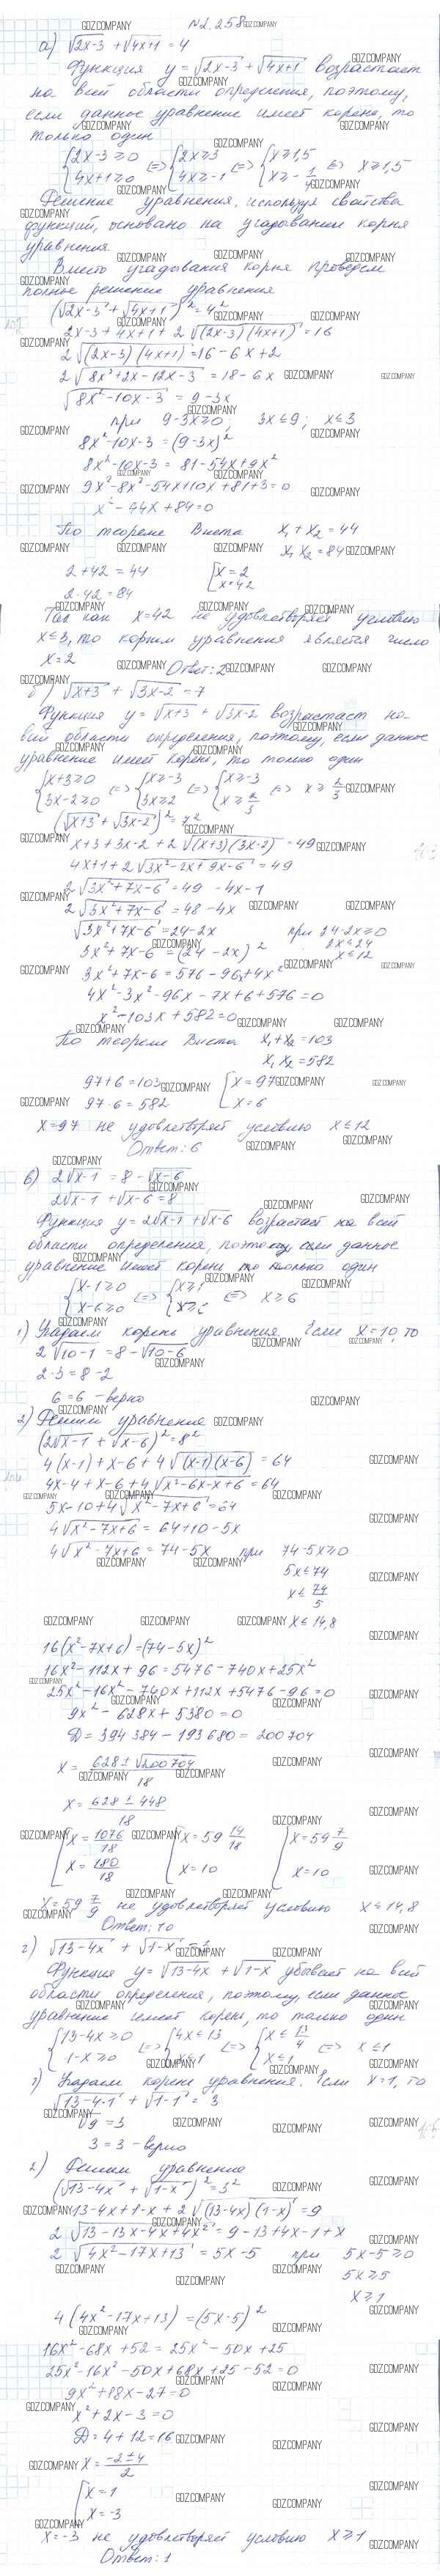 N2.258
а) √2x-3 + √4x+1 = 4
Функция y = √2x-3 + √4x+1 возрастает
на всей области определения, поэтому,
если данное уравнение имеет корень, то
только один
{2x-3≥0 <=> {2x≥3 <=> {x≥1,5 <=> x≥1,5
{4x+1≥0 {4x≥-1 {x≥-1/4
Решение уравнения, используя свойства
функций, основано на угадывании корня
уравнения.
Вместо угадывания корня проведем
полное решение уравнения
(√2x-3 + √4x+1)² = 4²
2x-3+4x+1+2√(2x-3)(4x+1) = 16
2√(2x-3)(4x+1) = 16-6x+2
2√8x²+2x-12x-3 = 18-6x
√8x²-10x-3 = 9-3x
при 9-3x≥0, 3x≤9; x≤3
8x²-10x-3 = (9-3x)²
8x²-10x-3 = 81-54x+9x²
9x²-8x²-54x+10x+81+3=0
x²-44x+84=0
По теореме Виета x₁+x₂=44
x₁x₂=84
2+42=44 [x=2
2·42=84 [x=42
Так как x=42 не удовлетворяет условию
x≤3, то корнем уравнения является число
x=2
Ответ: 2
б) √x+3 + √3x-2 = 7
Функция y = √x+3 + √3x-2 возрастает на
всей области определения, поэтому, если данное
уравнение имеет корень, то только один
{x+3≥0 <=> {x≥-3 <=> {x≥-3 <=> x≥2/3
{3x-2≥0 {3x≥2 {x≥2/3
(√x+3 + √3x-2)² = 7²
x+3+3x-2+2√(x+3)(3x-2) = 49
4x+1+2√3x²-2x+9x-6 = 49
2√3x²+7x-6 = 49-4x-1
2√3x²+7x-6 = 48-4x
√3x²+7x-6 = 24-2x при 24-2x≥0
2x≤24
3x²+7x-6 = (24-2x)² x≤12
3x²+7x-6 = 576-96x+4x²
4x²-3x²-96x-7x+6+576=0
x²-103x+582=0
По теореме Виета x₁+x₂=103
x₁x₂=582
97+6=103 [x=97
97·6=582 [x=6
x=97 не удовлетворяет условию x≤12
Ответ: 6
в) 2√x-1 = 8-√x-6
2√x-1 + √x-6 = 8
Функция y=2√x-1 + √x-6 возрастает на всей
области определения, поэтому если данное
уравнение имеет корень то только один
{x-1≥0 <=> {x≥1 <=> x≥6
{x-6≥0 {x≥6
1) Угадаем корень уравнения. Если x=10, то
2√10-1 = 8-√10-6
2·3=8-2
6=6 - верно
2) Решим уравнение
(2√x-1 + √x-6)² = 8²
4(x-1)+x-6+4√(x-1)(x-6) = 64
4x-4+x-6+4√x²-6x-x+6 = 64
5x-10+4√x²-7x+6 = 64
4√x²-7x+6 = 64+10-5x
4√x²-7x+6 = 74-5x при 74-5x≥0
5x≤74
x≤74/5
x≤14,8
16(x²-7x+6)=(74-5x)²
16x²-112x+96=5476-740x+25x²
25x²-16x²-740x+112x+5476-96=0
9x²-628x+5380=0
D=394384-193680=200704
x = (628±√200704)/18
x = (628±448)/18
[x=1076/18 [x=59 14/18 [x=59 7/9
[x=180/18 [x=10 [x=10
x=59 7/9 не удовлетворяет условию x≤14,8
Ответ: 10
г) √13-4x + √1-x =
Функция y=√13-4x + √1-x убывает на всей
области определения, поэтому, если данное
уравнение имеет корень, то только один
{13-4x≥0 <=> {4x≤13 <=> {x≤13/4 <=> x≤1
{1-x≥0 {x≤1 {x≤1
1) Угадаем корень уравнения. Если x=1, то
√13-4·1 + √1-1 = 3
√9 = 3
3=3 - верно
2) Решим уравнение
(√13-4x + √1-x)² = 3²
13-4x+1-x+2√(13-4x)(1-x) = 9
2√13-13x-4x+4x² = 9-13+4x-1+x
2√4x²-17x+13 = 5x-5 при 5x-5≥0
5x≥5
x≥1
4(4x²-17x+13)=(5x-5)²
16x²-68x+52=25x²-50x+25
25x²-16x²-50x+68x+25-52=0
9x²+18x-27=0
x²+2x-3=0
D=4+12=16
x = (-2±4)/2
[x=1
[x=-3
x=-3 не удовлетворяет условию x≥1
Ответ: 1
GDZ.COMPANY